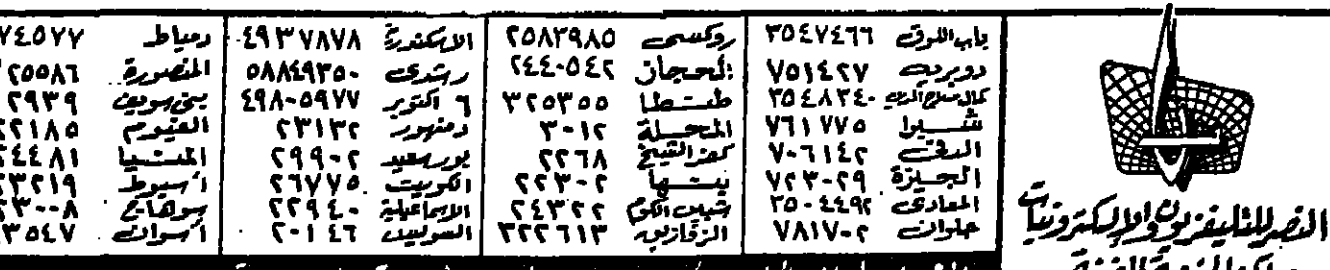 النصر للتليفزيون والإلكترونيات
باب اللوق ٣٥٤٧٤٦٦
دوبريه ٧٥١٤٢٧
كمال صلاح الدين ٣٥٤٨٣٤٠
شبرا ٧٦١٧٧٥
الدقى ٧٠٦١٤٢
الجيزة ٧٢٣٠٢٩
المعادى ٣٥٠٤٤٩٢
حلوان ٧٨١٧٠٢
روكسى ٢٥٨٣٩٨٥
الحجاز ٢٤٤٠٥٤٢
طنطا ٣٢٥٣٥٥
المحلة ٣٠١٢
كفر الشيخ ٢٢٦٨
بنها ٢٢٣٠٢
شبين الكوم ٢٤٣٢٢
الزقازيق ٣٢٢٦١٣
الاسكندرية ٤٩٣٧٨٧٨
رشدى ٥٨٨٤٩٣٥٠
٦ اكتوبر ٤٩٨٠٥٩٧٧
دمنهور ٢٣١٣٢
بورسعيد ٢٩٩٠٢
الكويت ٢٦٧٧٥
الاسماعيلية ٢٢٩٤٠
السويس ٢٠١٤٦
دمياط ٧٤٥٧٧
المنصورة ٢٥٥٨٦
بنى سويف ٢٩٣٩
الفيوم ٢٢١٨٥
المنيا ٢٤٤٨١
أسيوط ٢٣٢١٩
سوهاج ٢٣٠٠٨
أسوان ٣٥٤٧